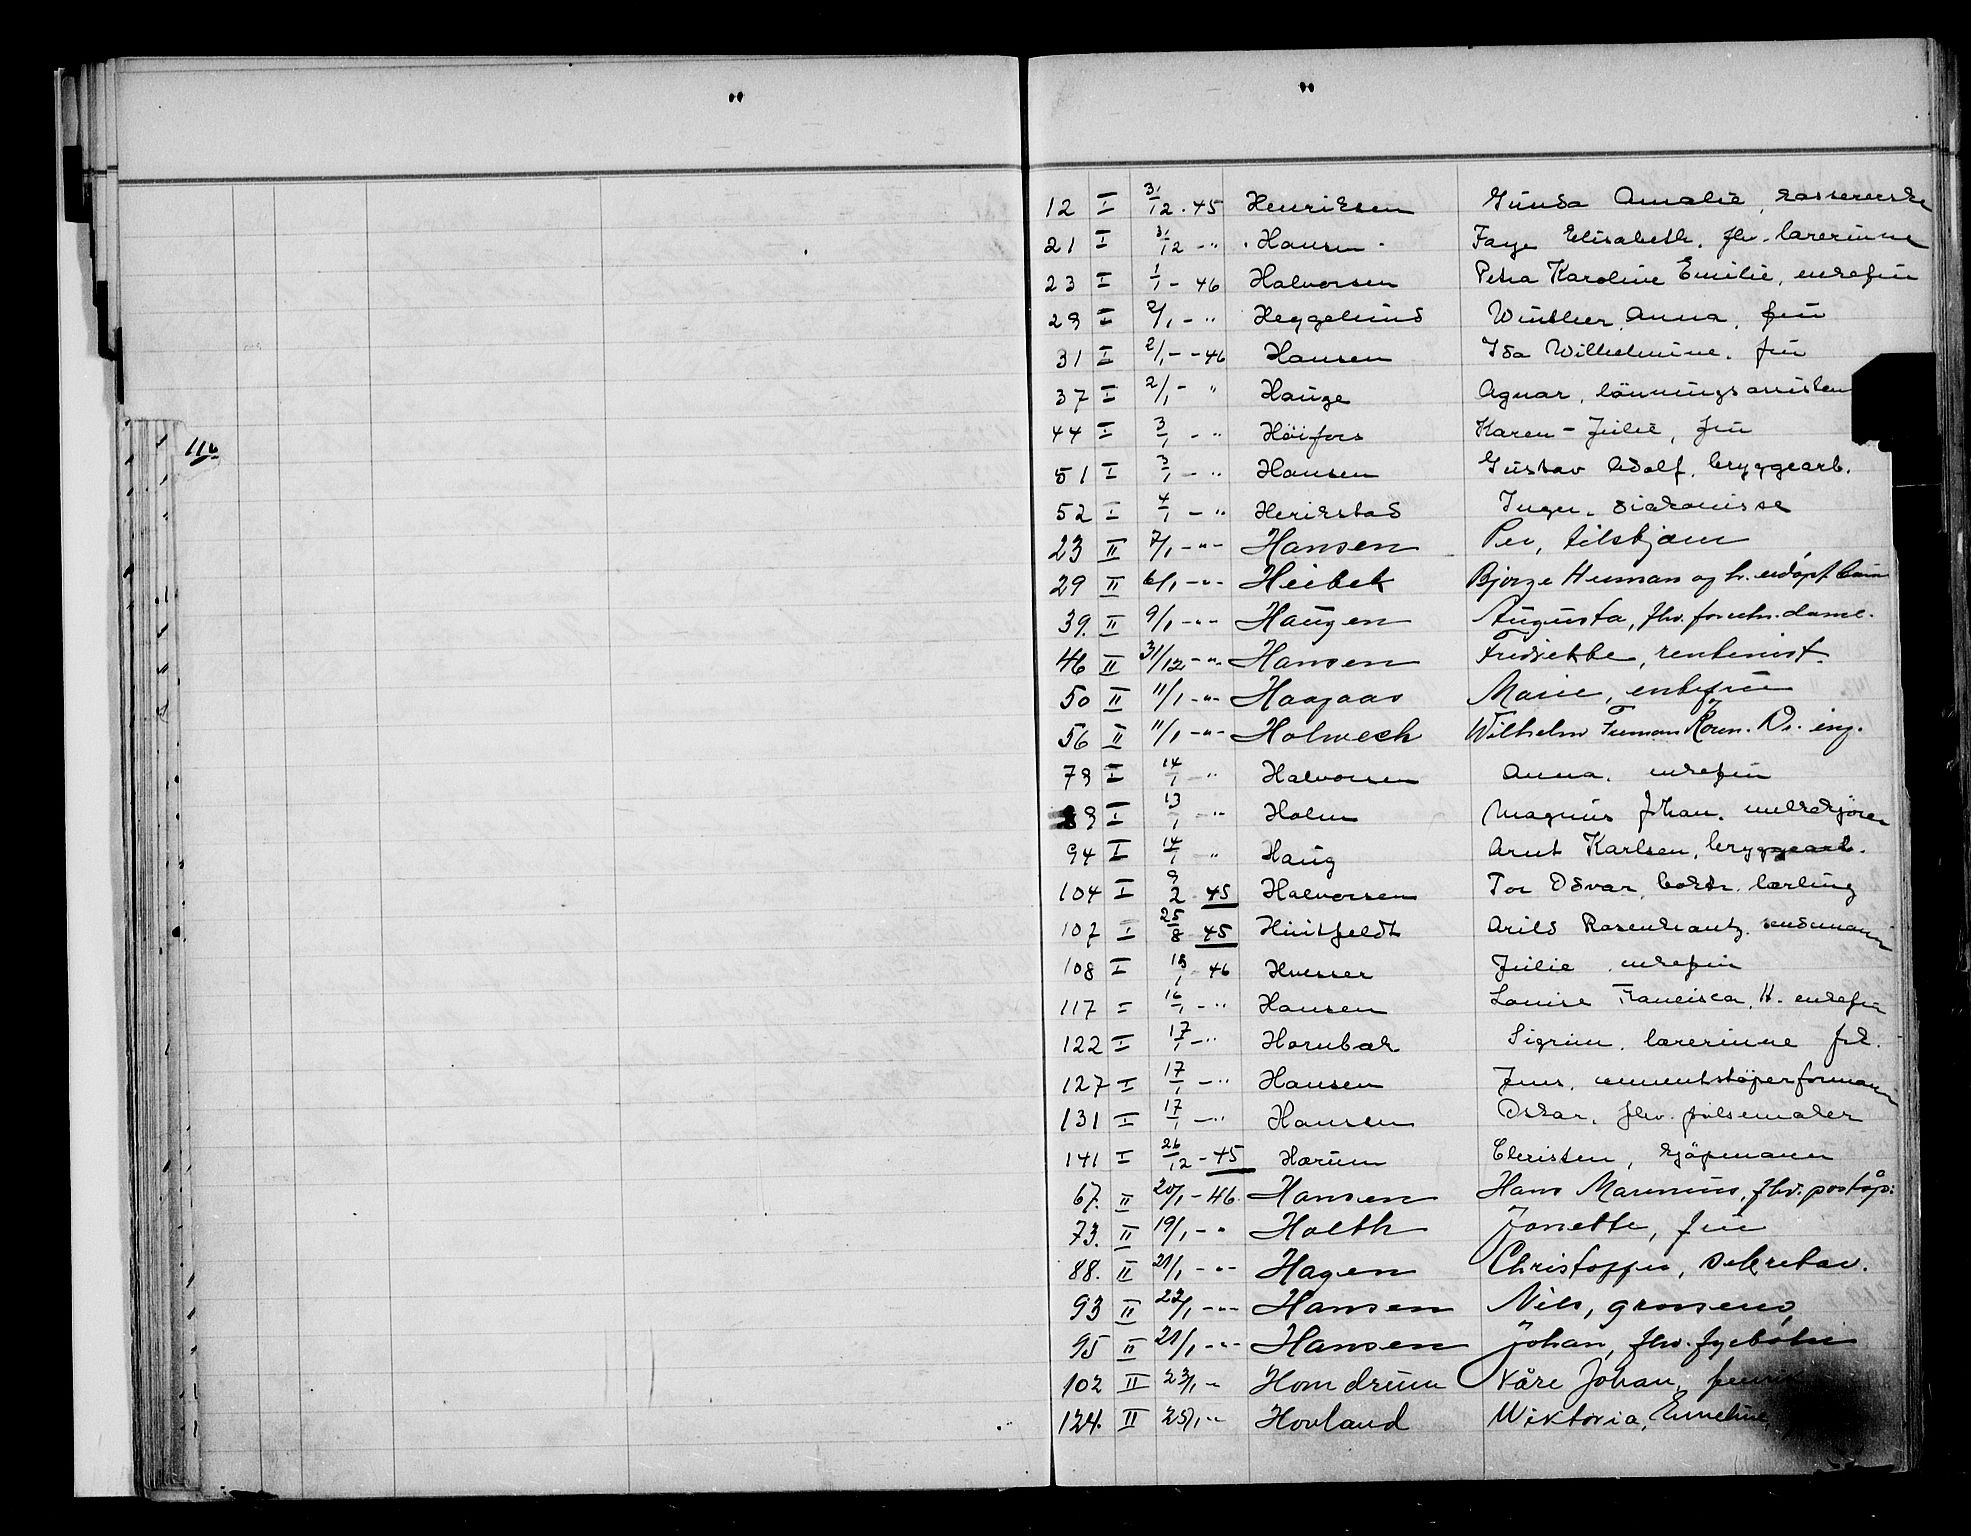 116
12 I 31/12 - 45 Henriksen Gunda Amalie, kassererske
21 I 31/12 - " Hansen Faye Elisabeth, fhv. lærerinne
23 I 1/1 - 46 Halvorsen Petra Karoline Emilie, enkefru
29 I 2/1 - " Heggelund Winther, Anna, fru
31 I 2/1 - 46 Hansen Ida Wilhelmine, fru
37 I 2/1 - " Hauge Agnar,
44 I 3/1 - " Höifors Karen-Julie, fru
51 I 3/1 - " Hansen Gustav Adolf, bryggearb.
52 I 4/1 - " Herikstad Inger, diakonisse
23 II 7/1 - " - Hansen Per, tilskjærer
29 II 6/1 - " - Heibek Bjørge Herman og h.
39. II 9/1 - " - Haugen Augusta, fhv. forretn. dame.
46 II 31/12 - " - Hansen Fredrikke, rentenist.
50 II 11/1 - " - Haagaas Marie, enkefru
56 II 11/1 - " - Holwech Wilhelm Dr. ing.
79 I 14/1 - " Halvorsen Anna, enkefru
89 I 13/1 - " Holm Magnus Johan, melkekjører
94 I 14/1 - " Haug Arnt Karlsen, bryggearb.
104 I 9/2 - 45 Halvorsen Tor Odvar, boktr. lærling
107 I 25/8 - 45 Huitfeldt Arild Rosenkrantz, sendemann
108 I 18/1 - 46 Huesser Julie, enkefru
117 I 16/1 - " Hansen Louise Francisca H. enkefru
122 I 17/1 - " Hornbæk Sigrun, lærerinne frk.
127 I 17/1 - " Hansen Jens, cementstøperformann
131 I 17/1 - " Hansen Oskar, fhv. pølsemaker
141 I 26/12 - 45 Hærum Christen, kjöpmann
67. II 20/1 - 46. Hansen Hans Marenius, fhv. poståp.
73. II 19/1 - " Holth Jonette, fru
88. II 21/1 - " - Hagen Christoffer, sekretær.
93 II 22/1 - " - Hansen Nils, grosserer
95 II 21/1 - " - Hansen Johan, fhv. fyrbøter
102 II 23/1 - " Homdrum Kåre Johan,
124. II 25/1 - " Hovland Wiktoria, Emeline,